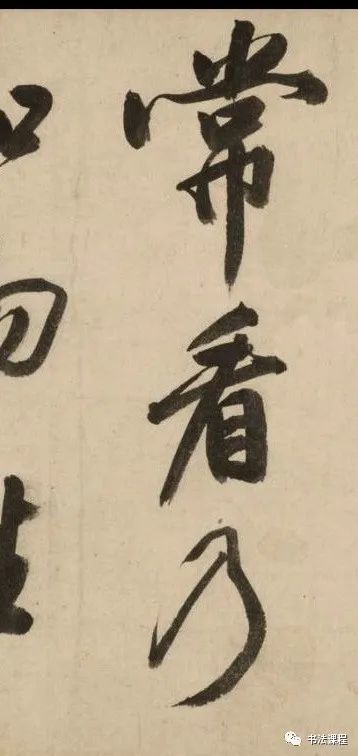 常看乃
书法课程